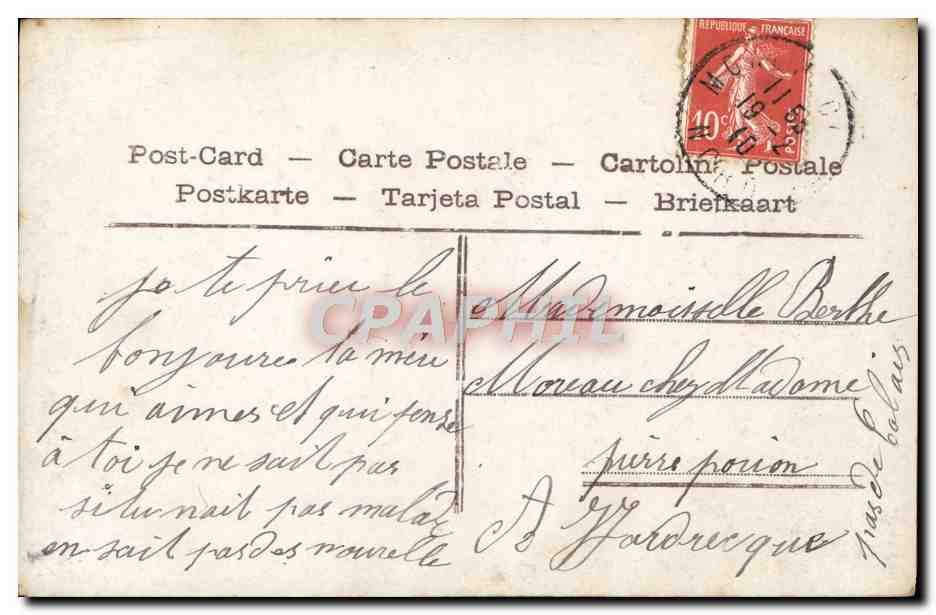 REPUBLIQUE FRANÇAISE
10c POSTES
11 35
19-2
10
Post-Card — Carte Postale — Cartolina Postale
Postkarte — Tarjeta Postal — Briefkaart
CPAPHIL
je te prieu le
bonjoures ta méu
qui aimes et qui pense
à toi je ne sait pas
si tu nait pas malad
en sait pas des nouvelle
Mademoisselle Berthe
Moreau chez Madame
pierre pouion
A Wardrecque
pas de Calais